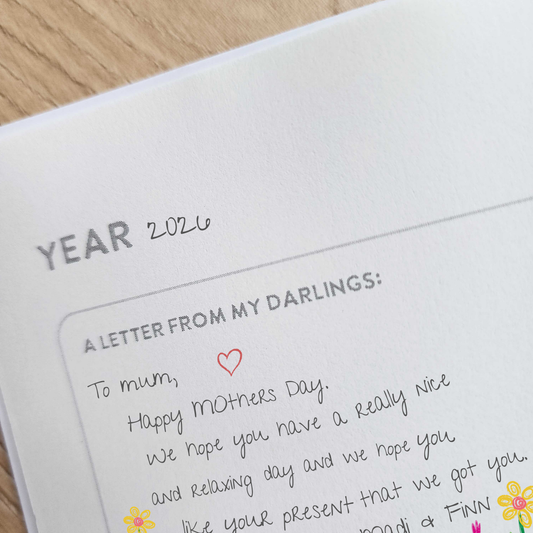 YEAR 2026
A LETTER FROM MY DARLINGS:
To mum,
Happy Mothers Day.
We hope you have a really nice
and relaxing day and we hope you
like your present that we got you.
& Finn